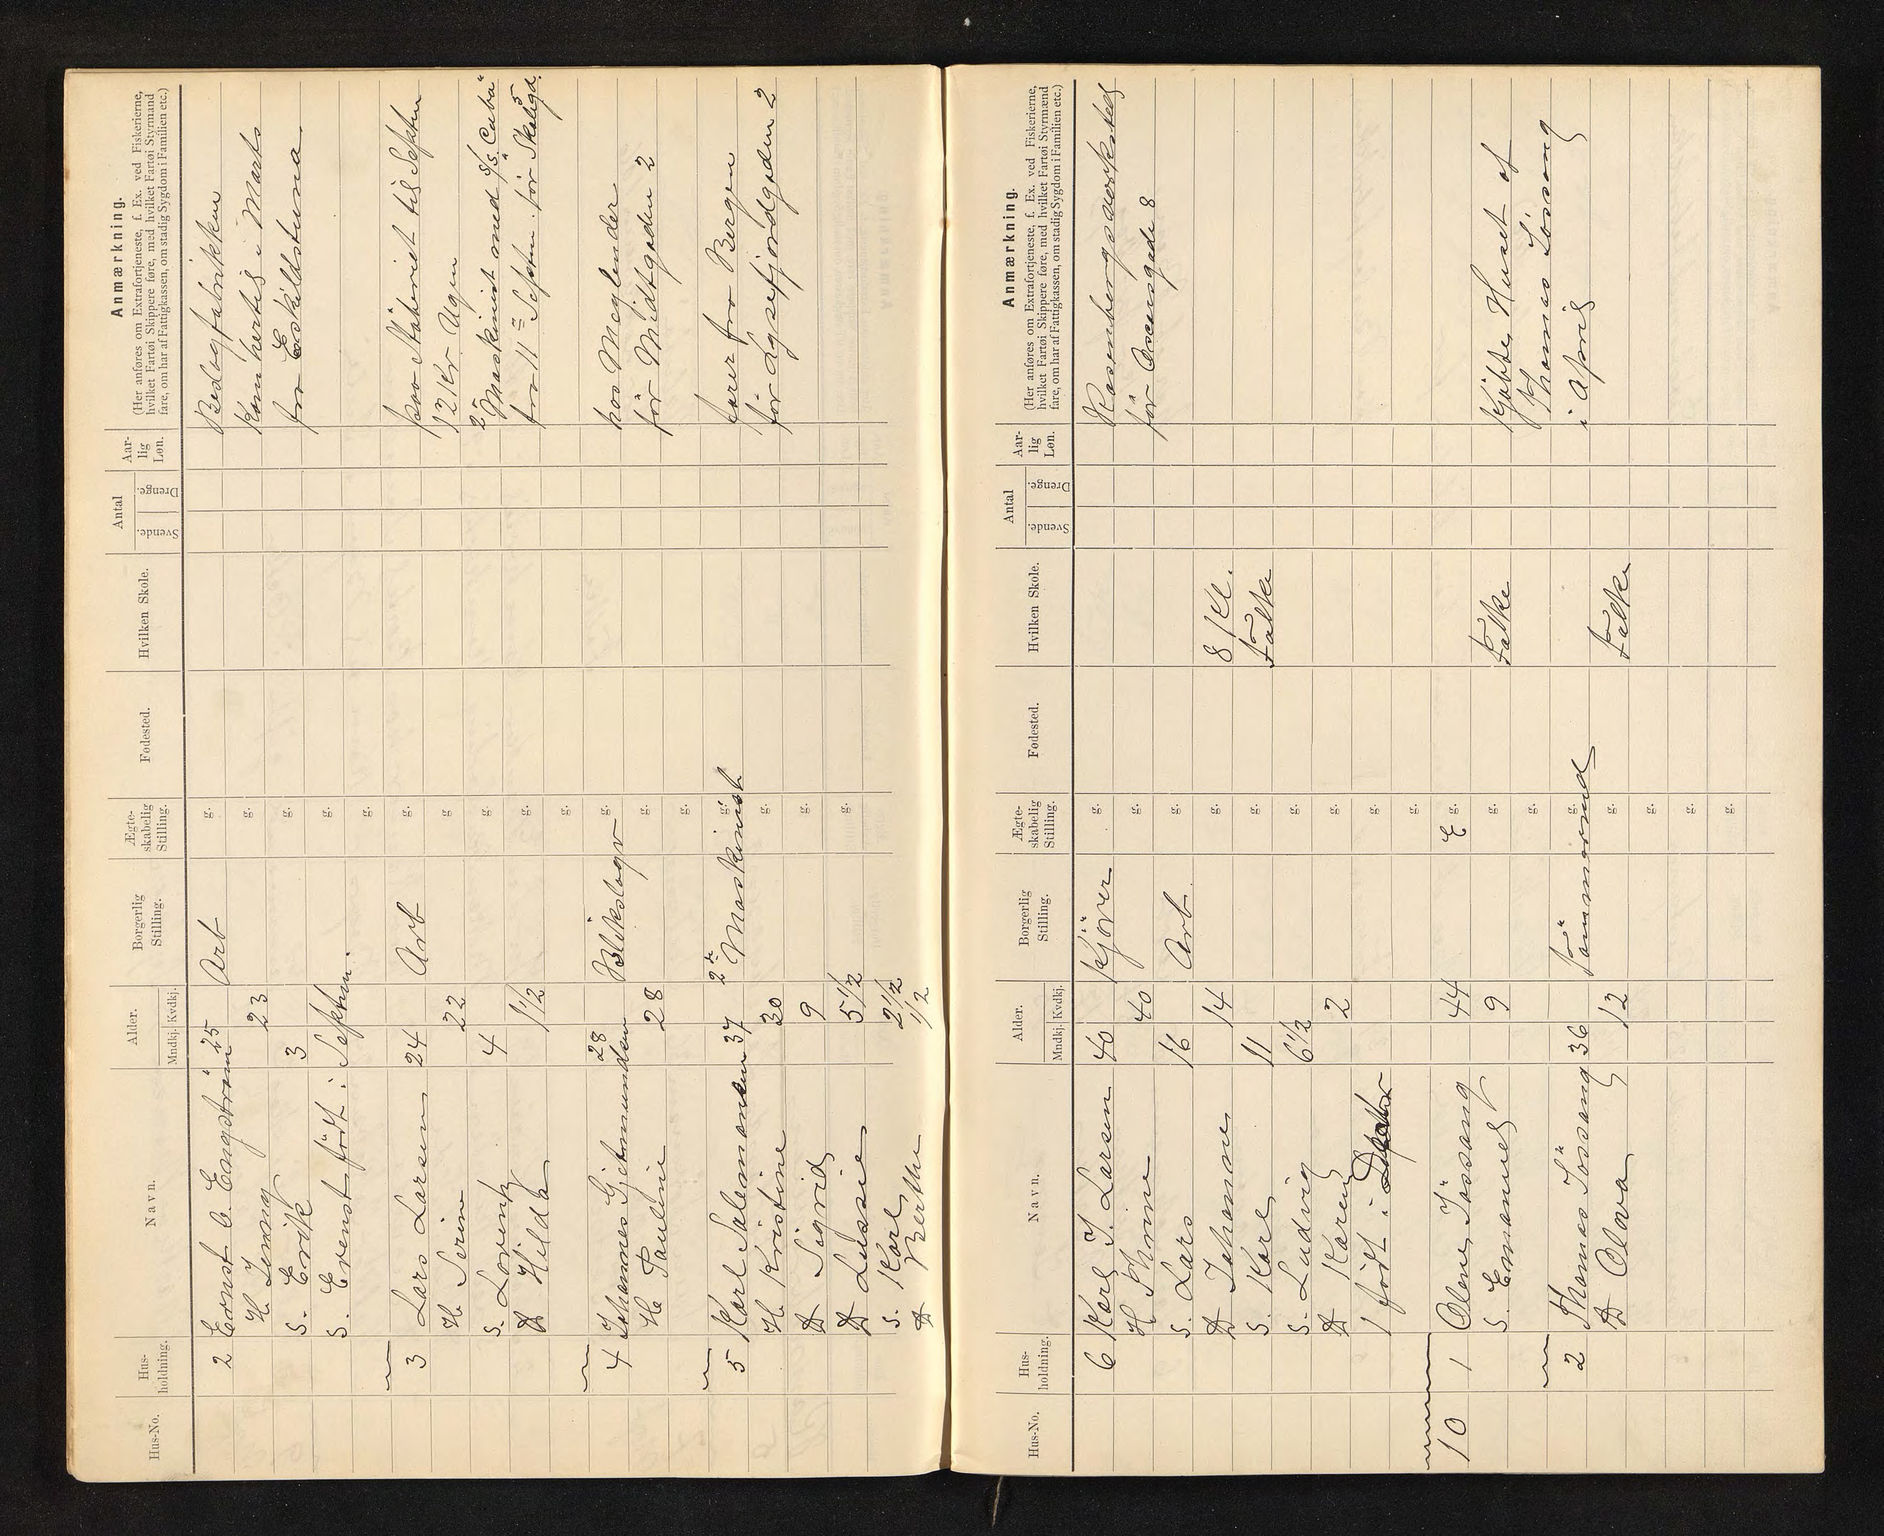 Hus-No. Hus-holdning. Navn. Alder. Mndkj. Kvdkj. Borgerlig Stilling. Ægte-skabelig Stilling. Fødested. Hvilken Skole. Antal Svende. Drenge. Aar-lig Løn. Anmærkning.
(Her anføres om Extrafortjeneste, f. Ex. ved Fiskerierne,
hvilket Fartøi Skippere føre, med hvilket Fartøi Styrmand
fare, om har af Fattigkassen, om stadig Sygdom i Familien etc.)
2 Ernst C. Engström 25 Arb g. Beslagfabrikken
H. Jenny 23 g. Kom hertil i Marts
S. Erik 3 g. fra Eskildstuna
S. Erenst födt i Septm. g.
g.
3 Lars Larsen 24 Arb g. paa Stöberiet til Septm
H Serine 22 g 12 Kr. Ugen
S. Lorentz 4 g. 2n Maskinist med S/S. "Cuba"
D Hilda 1 1/2 g. fra 11te Septm. för Skoligd. 5
g.
4 Johannes Gjetmundsen 28 Blikslagr g. hos Meylender
H Pauline 28 g. för Midtgaden 2
g.
5 Karl Salemonsen 37 2de Maskinist g. farer fra Bergen
H. Kristine 30 g. för Lysefjordgaden 2
D Sigrid 9 g.
D Lussie 5 1/2 g.
S. Karl 2 1/2
D Berthe 1/2
Hus-No. Hus-holdning. Navn. Alder. Mndkj. Kvdkj. Borgerlig Stilling. Ægte-skabelig Stilling. Fødested. Hvilken Skole. Antal Svende. Drenge. Aar-lig Løn. Anmærkning.
(Her anføres om Extrafortjeneste, f. Ex. ved Fiskerierne,
hvilket Fartøi Skippere føre, med hvilket Fartøi Styrmænd
fare, om har af Fattigkassen, om stadig Sygdom i Familien etc.)
6 Karl J. Larsen 40 Kjörer g. Rosenbergsværksted
H Thrine 40 g. för Oscarsgade 8
S. Lars 16 Arb. g.
D Johanne 14 g. 8 Kl.
S. Karl 11 g. Falke
S. Ludvig 6 1/2 g.
D Karen 2 g.
1 födt i g.
g.
10 1 Olene Jössang 44 E g.
S. Emanuel 9 g. Falke Kjöbte Huset af
g. Thomas Jössang
2 Thomas Jössang 36 Tömmermd g. i April
D Olova 12 g. Falke
g.
g.
g.